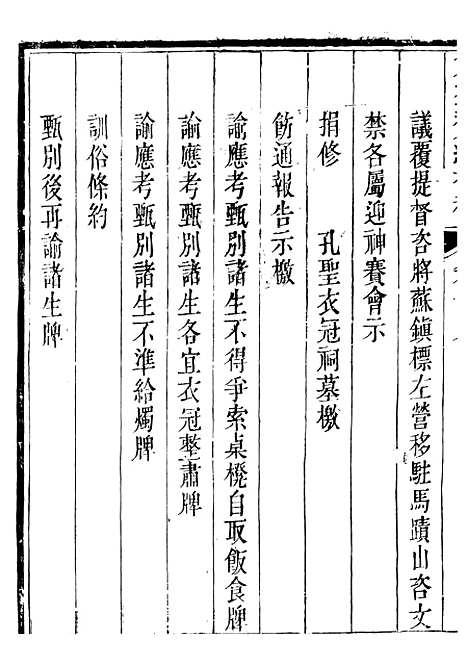 議覆提督咨將蘇鎮標左營移駐馬蹟山咨文
禁各屬迎神賽會示
捐修　孔聖衣冠祠墓檄
飭通報告示檄
諭應考甄別諸生不得爭索桌櫈自取飯食牌
諭應考甄別諸生各宜衣冠整肅牌
諭應考甄別諸生不準給燭牌
訓俗條約
甄別後再諭諸生牌